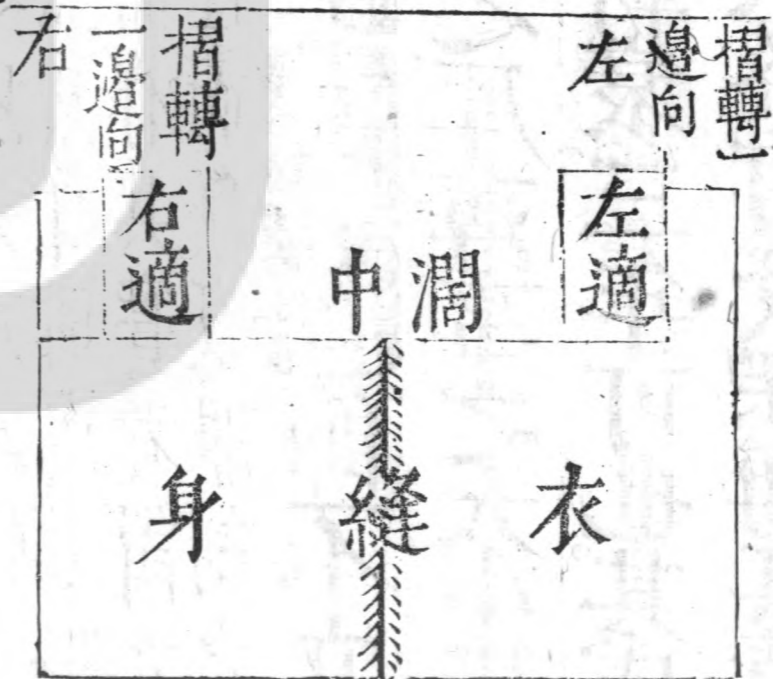 摺轉一
邉向
左
摺轉
一邉向
右
左適
右適
濶中
衣縫身